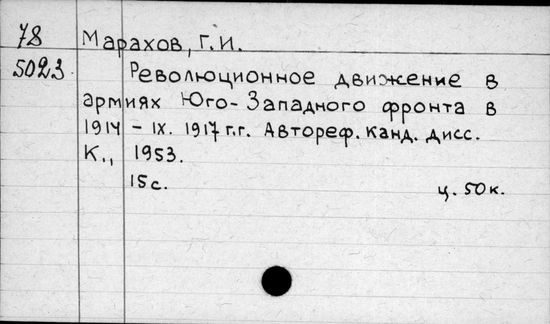 78 Марахов, Г.И.
5023. Революционное движение в
армиях Юго-Западного фронта в
1914 – IX. 1917 г.г. Автореф. канд. дисс.
К., 1953.
15 с. ц. 50 к.